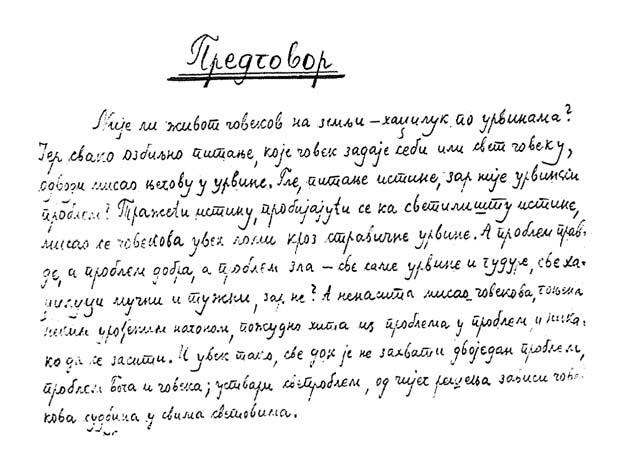 Предговор
Није ли живот човеков на земљи – хаџилук по урвинама?
Јер свако озбиљно питање, које човек задаје себи или свет човеку,
одвози мисао његову у урвине. Гле, питање истине, зар није урвински
проблем? Тражећи истину, пробијајући се ка светилишту истине,
мисао се човекова увек ломи кроз стравичне урвине. А проблем прав-
де, а проблем добра, а проблем зла – све саме урвине и чудује, све ха-
џилуци мучни и тужни, зар не? А ненасита мисао човекова, гоњена
неким урођеним нагоном, пожудно хита из проблема у проблем, и ника-
ко да се засити. И увек тако, све док је не захвати двоједан проблем,
проблем Бога и човека; уствари свепроблем, од чијег решења зависи чове-
кова судбина у свима световима.